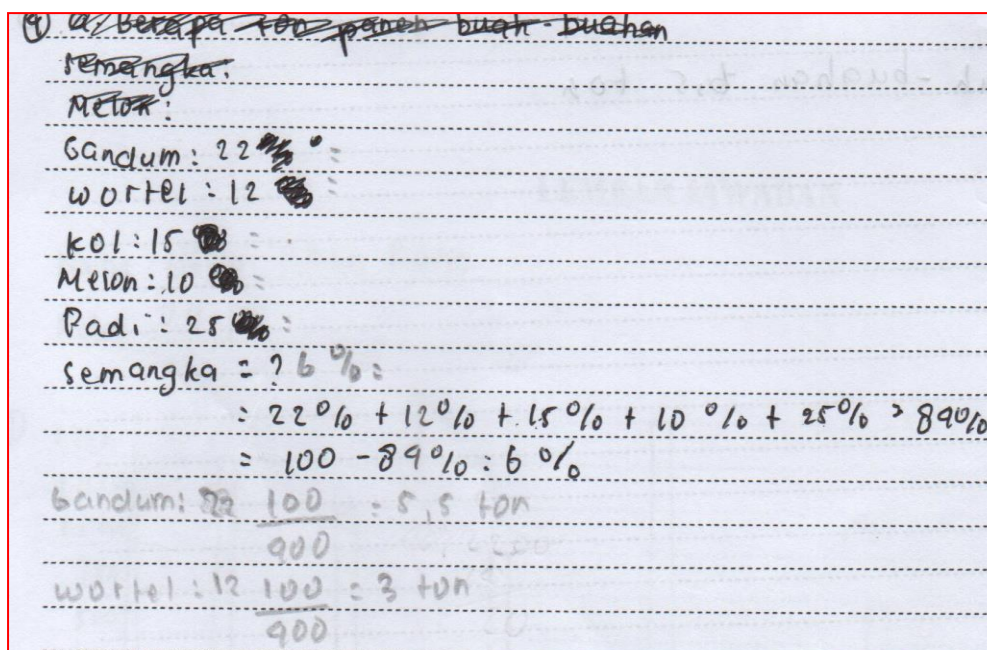 9 a, Berapa ton panen buah-buahan
semangka:
Melon:
Gandum: 22 =
wortel: 12 =
kol: 15 =
Melon: 10 =
Padi: 25 =
semangka = ? 6 % =
= 22% + 12% + 15% + 10 % + 25% = 89%
= 100 - 89% = 6 %
Gandum: 22 100 = 5,5 ton
400
wortel: 12 100 = 3 ton
400